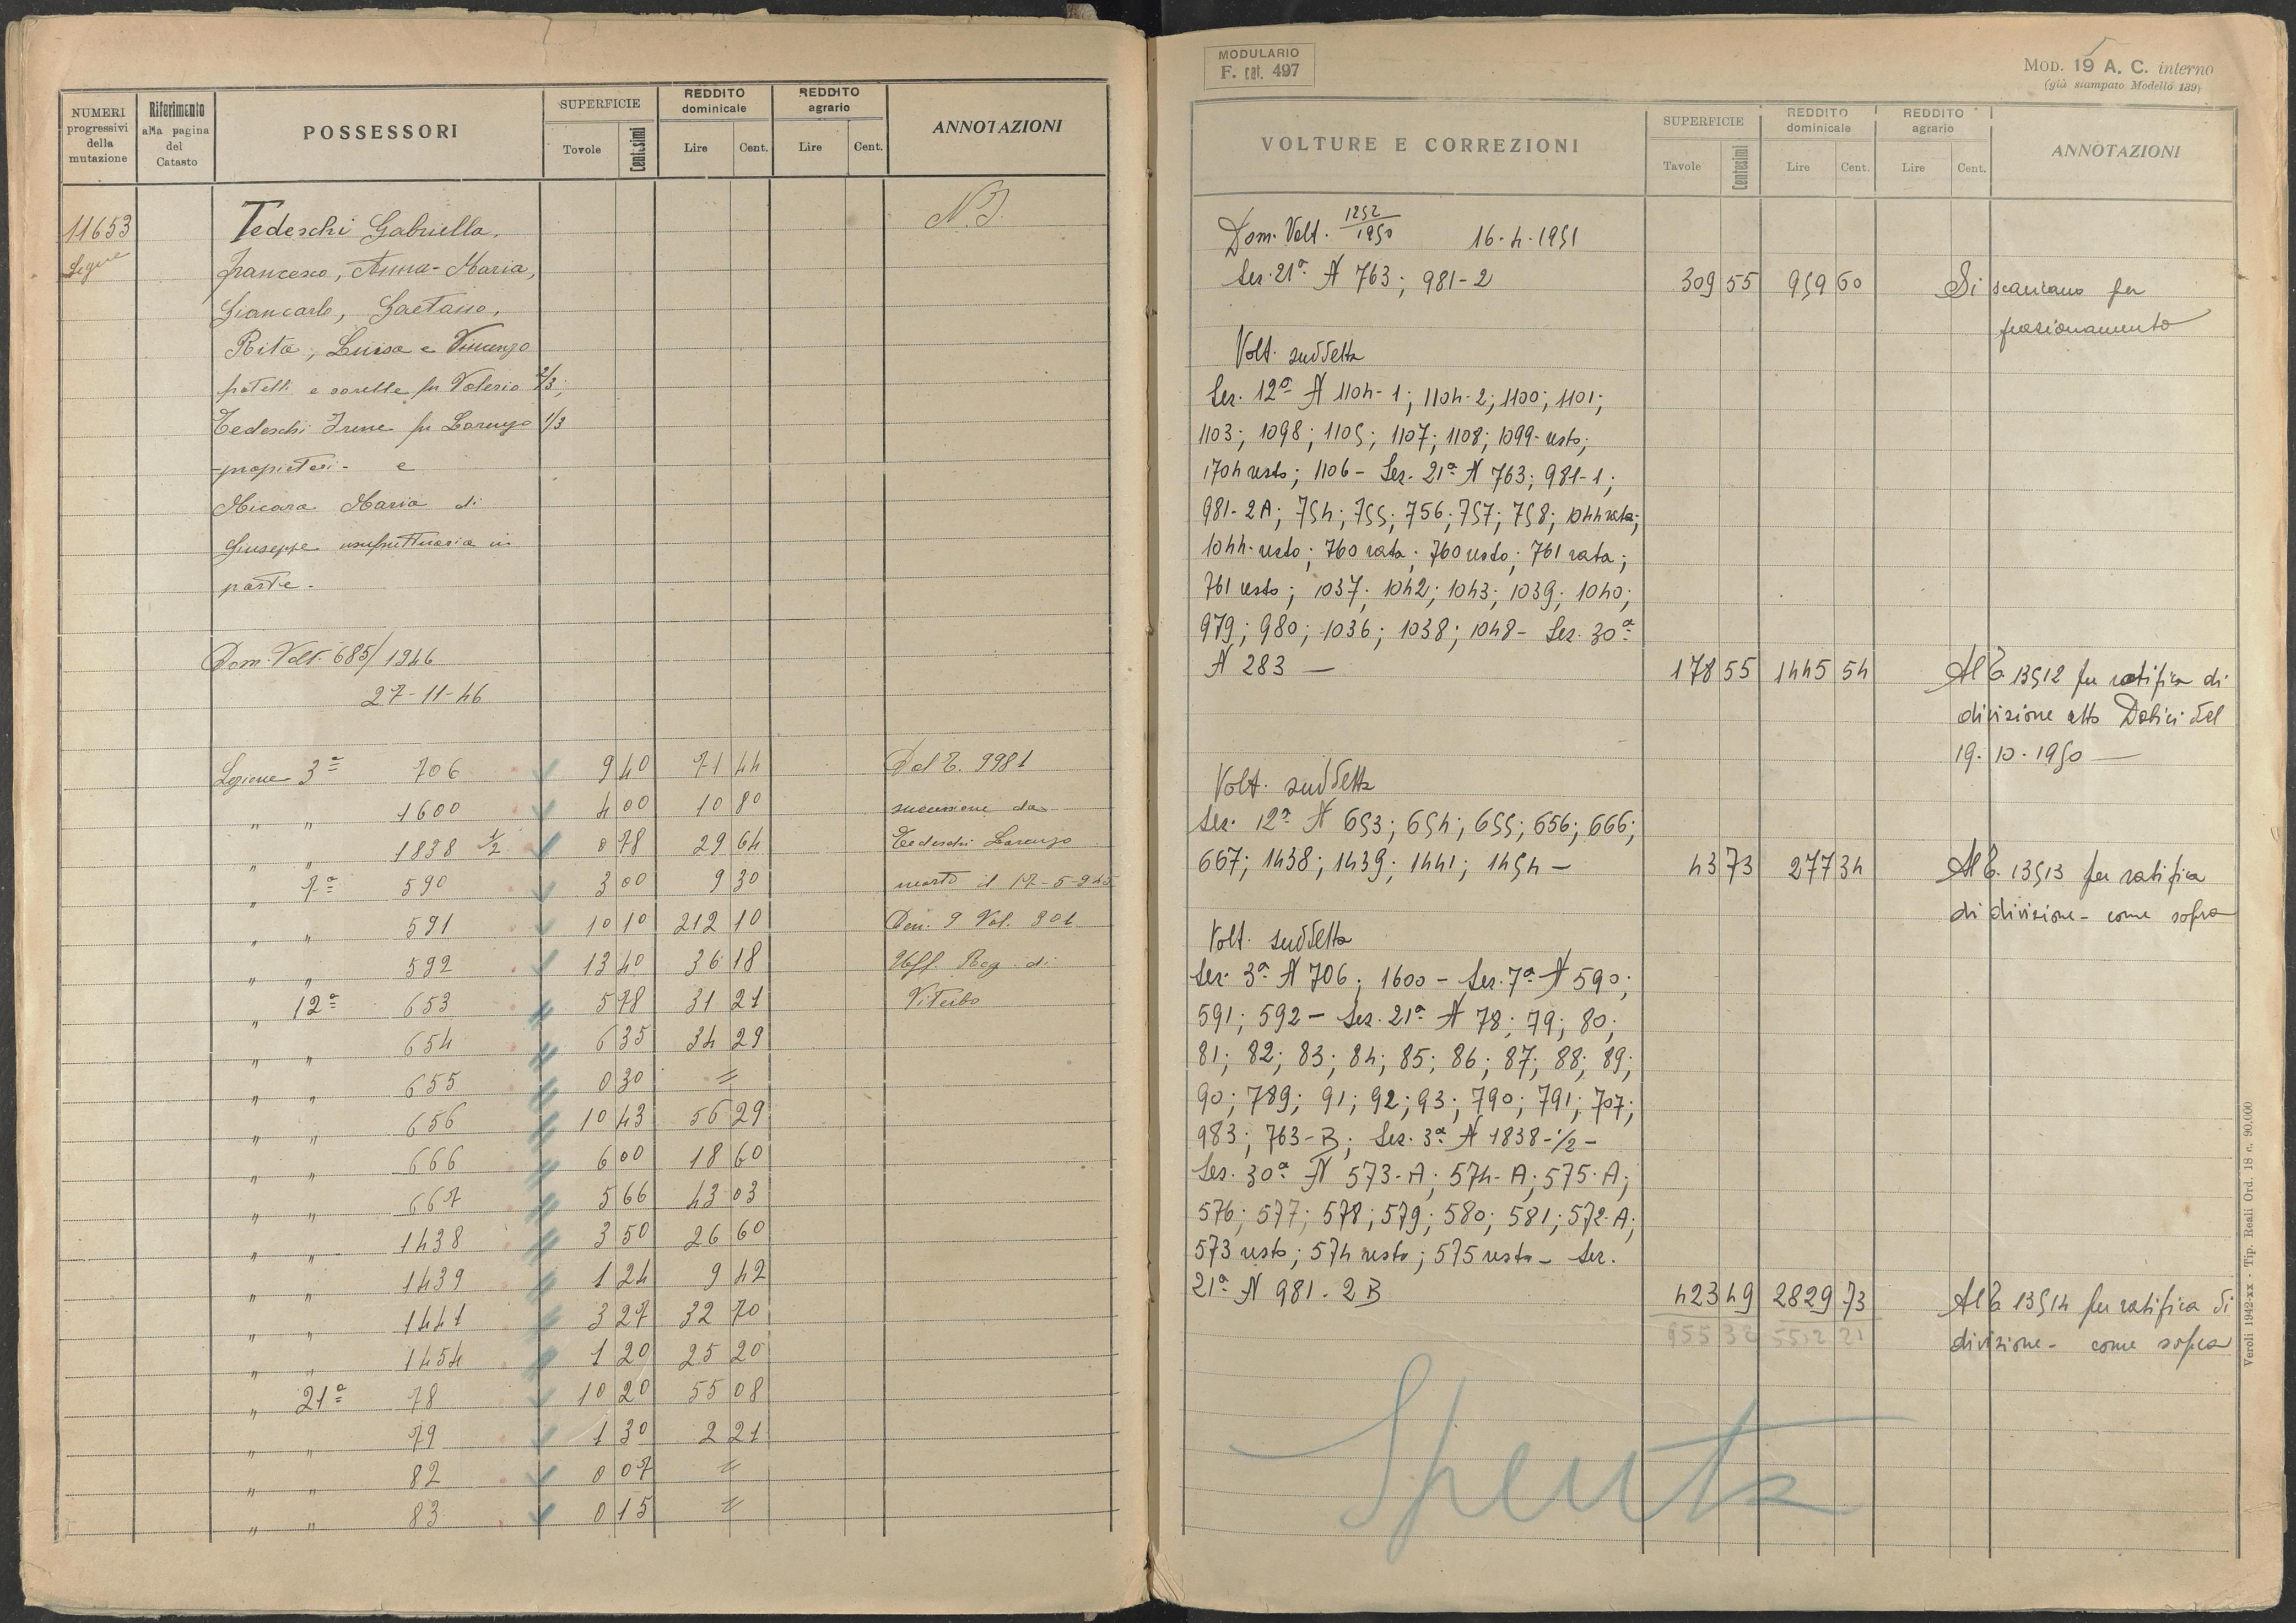 NUMERI progressivi della mutazione
Riferimento alla pagina del Catasto
POSSESSORI
SUPERFICIE
Tovole Centesimi
REDDITO dominicale
Lire Cent.
REDDITO agrario
Lire Cent.
ANNOTAZIONI
11653 Tedeschi Gabriella, N.I.
Segue Francesco, Anna-Maria,
Giancarlo, Gaetano,
Rita, Luisa e Vincenzo
fratelli e sorelle fu Valerio 2/3;
Tedeschi Irene fu Lorenzo 1/3
-proprietari- e
Micara Maria di
Giuseppe usufruttuaria in
parte.
Dom. Volt. 685/1946
27-11-46
Sezione 3ª 706 9 40 71 44 Dal C. 9981
" " 1600 4 00 10 80 successione da
" " 1838 1/2 0 78 29 64 Tedeschi Lorenzo
" 7ª 590 3 00 9 30 morto il 17-5-945
" " 591 10 10 212 10 Den. 9 Vol. 301
" " 592 13 40 36 18 Uff. Reg. di
" 12ª 653 5 78 31 21 Viterbo
" " 654 6 35 34 29
" " 655 0 30 =
" " 656 10 43 56 29
" " 666 6 00 18 60
" " 667 5 66 43 03
" " 1438 3 50 26 60
" " 1439 1 24 9 42
" " 1441 3 27 32 70
" " 1454 1 20 25 20
" 21ª 78 10 20 55 08
" " 79 1 30 2 21
" " 82 0 07 =
" " 83 0 15 =
MODULARIO
F. cat. 497
5
MOD. 19 A. C. interno
(già stampato Modello 139)
VOLTURE E CORREZIONI
SUPERFICIE
Tavole Centesimi
REDDITO dominicale
Lire Cent.
REDDITO agrario
Lire Cent.
ANNOTAZIONI
Dom. Volt. 1252/1950 16-4-1951
Sez. 21ª N 763; 981-2 309 55 959 60 Si scaricano per
frazionamento
Volt. suddetta
Sez. 12ª N 1104-1; 1104-2; 1100; 1101;
1103; 1098; 1105; 1107; 1108; 1099-resto;
1704 resto; 1106 - Sez. 21ª N 763; 981-1;
981-2A; 754; 755; 756; 757; 758; 1044 rata;
1044-resto; 760 rata; 760 resto; 761 rata;
761 resto; 1037; 1042; 1043; 1039; 1040;
979; 980; 1036; 1038; 1048 - Sez. 30ª
N 283 — 178 55 1445 54 Al C. 13512 per ratifica di
divisione atto Dobici del
19.10.1950 —
Volt. suddetta
Sez. 12ª N 653; 654; 655; 656; 666;
667; 1438; 1439; 1441; 1454 - 43 73 277 34 Al C. 13513 per ratifica
di divisione - come sopra
Volt. suddetta
Sez. 3ª N 706; 1600 - Sez. 7ª N 590;
591; 592 - Sez. 21ª N 78; 79; 80;
81; 82; 83; 84; 85; 86; 87; 88; 89;
90; 789; 91; 92; 93; 790; 791; 707;
983; 763-B; Sez. 3ª N 1838-1/2 -
Sez. 30ª N 573-A; 574-A; 575-A;
576; 577; 578; 579; 580; 581; 572-A;
573 resto; 574 resto; 575 resto - Sez.
21ª N 981-2B 423 49 2829 73 Al C. 13514 per ratifica di
955 32 5512 21 divisione - come sopra
Spenta
Veroli 1942-xx - Tip. Reali Ord. 18 c. 90.000